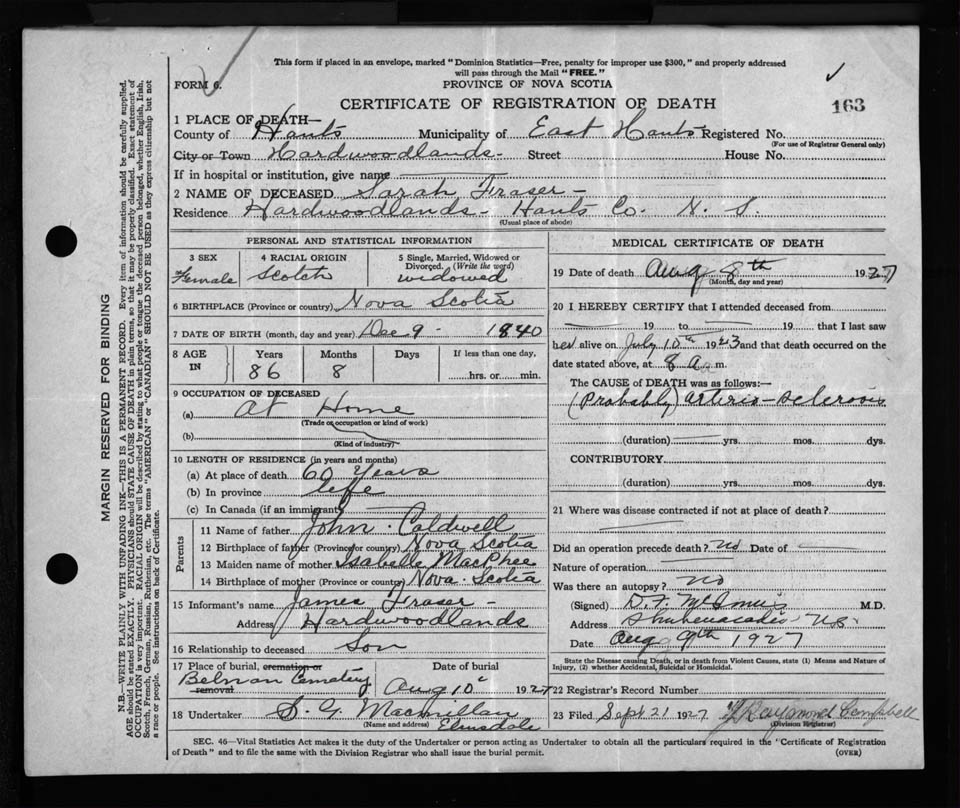 This form if placed in an envelope, marked "Dominion Statistics—Free, penalty for improper use $300," and properly addressed
will pass through the Mail "FREE."
FORM 6.
PROVINCE OF NOVA SCOTIA
CERTIFICATE OF REGISTRATION OF DEATH
163
1 PLACE OF DEATH—
County of Hants Municipality of East Hants Registered No.
(For use of Registrar General only)
City or Town Hardwoodlands- Street House No.
If in hospital or institution, give name
2 NAME OF DECEASED Sarah Fraser-
Residence Hardwoodlands- Hants Co. N. S.
(Usual place of abode)
PERSONAL AND STATISTICAL INFORMATION
3 SEX
Female
4 RACIAL ORIGIN
Scotch
5 Single, Married, Widowed or
Divorced. (Write the word)
widowed
6 BIRTHPLACE (Province or country) Nova Scotia
7 DATE OF BIRTH (month, day and year) Dec 9- 1840
8 AGE
IN
Years
86
Months
8
Days
If less than one day,
hrs. or min.
9 OCCUPATION OF DECEASED
(a) At Home
(Trade occupation or kind of work)
(b)
(Kind of industry)
10 LENGTH OF RESIDENCE (in years and months)
(a) At place of death 60 Years
(b) In province life
(c) In Canada (if an immigrant)
Parents
11 Name of father John Caldwell
12 Birthplace of father (Province or country) Nova Scotia
13 Maiden name of mother Isabelle MacPhee
14 Birthplace of mother (Province or country) Nova Scotia
15 Informant's name James Fraser-
Address Hardwoodlands
16 Relationship to deceased Son
17 Place of burial, cremation or
removal
Belnan Cemetery
Date of burial
Aug 10 1927
18 Undertaker S. G. Macmillan
(Name and address) Elmsdale
MEDICAL CERTIFICATE OF DEATH
19 Date of death Aug 8th 1927
(Month, day and year)
20 I HEREBY CERTIFY that I attended deceased from
19 to 19 that I last saw
her alive on July 10th 1923 and that death occurred on the
date stated above, at 8 a m.
The CAUSE of DEATH was as follows:—
(Probably) arterio-sclerosis
(duration) yrs. mos. dys.
CONTRIBUTORY
(duration) yrs. mos. dys.
21 Where was disease contracted if not at place of death?
Did an operation precede death? no Date of
Nature of operation
Was there an autopsy? no
(Signed) M.D.
Address Shubenacadie N.S.
Date Aug 9th 1927
State the Disease causing Death, or in death from Violent Causes, state (1) Means and Nature of
Injury, (2) whether Accidental, Suicidal or Homicidal.
22 Registrar's Record Number
23 Filed Sept 21 1927 Raymond Campbell
(Division Registrar)
SEC. 46—Vital Statistics Act makes it the duty of the Undertaker or person acting as Undertaker to obtain all the particulars required in the "Certificate of Registration
of Death" and to file the same with the Division Registrar who shall issue the burial permit.
(OVER)
MARGIN RESERVED FOR BINDING
N.B.—WRITE PLAINLY WITH UNFADING INK—THIS IS A PERMANENT RECORD. Every item of information should be carefully supplied.
AGE should be stated EXACTLY. PHYSICIANS should STATE CAUSE OF DEATH in plain terms, so that it may be properly classified. Exact statement of
OCCUPATION is very important. RACIAL ORIGIN will be described by stating to what people or tongue the deceased person belonged, whether English, Irish,
Scotch, French, German, Russian, Ruthenian, etc. The terms "AMERICAN" or "CANADIAN" SHOULD NOT BE USED as they express citizenship but not
a race or people. See instructions on back of Certificate.